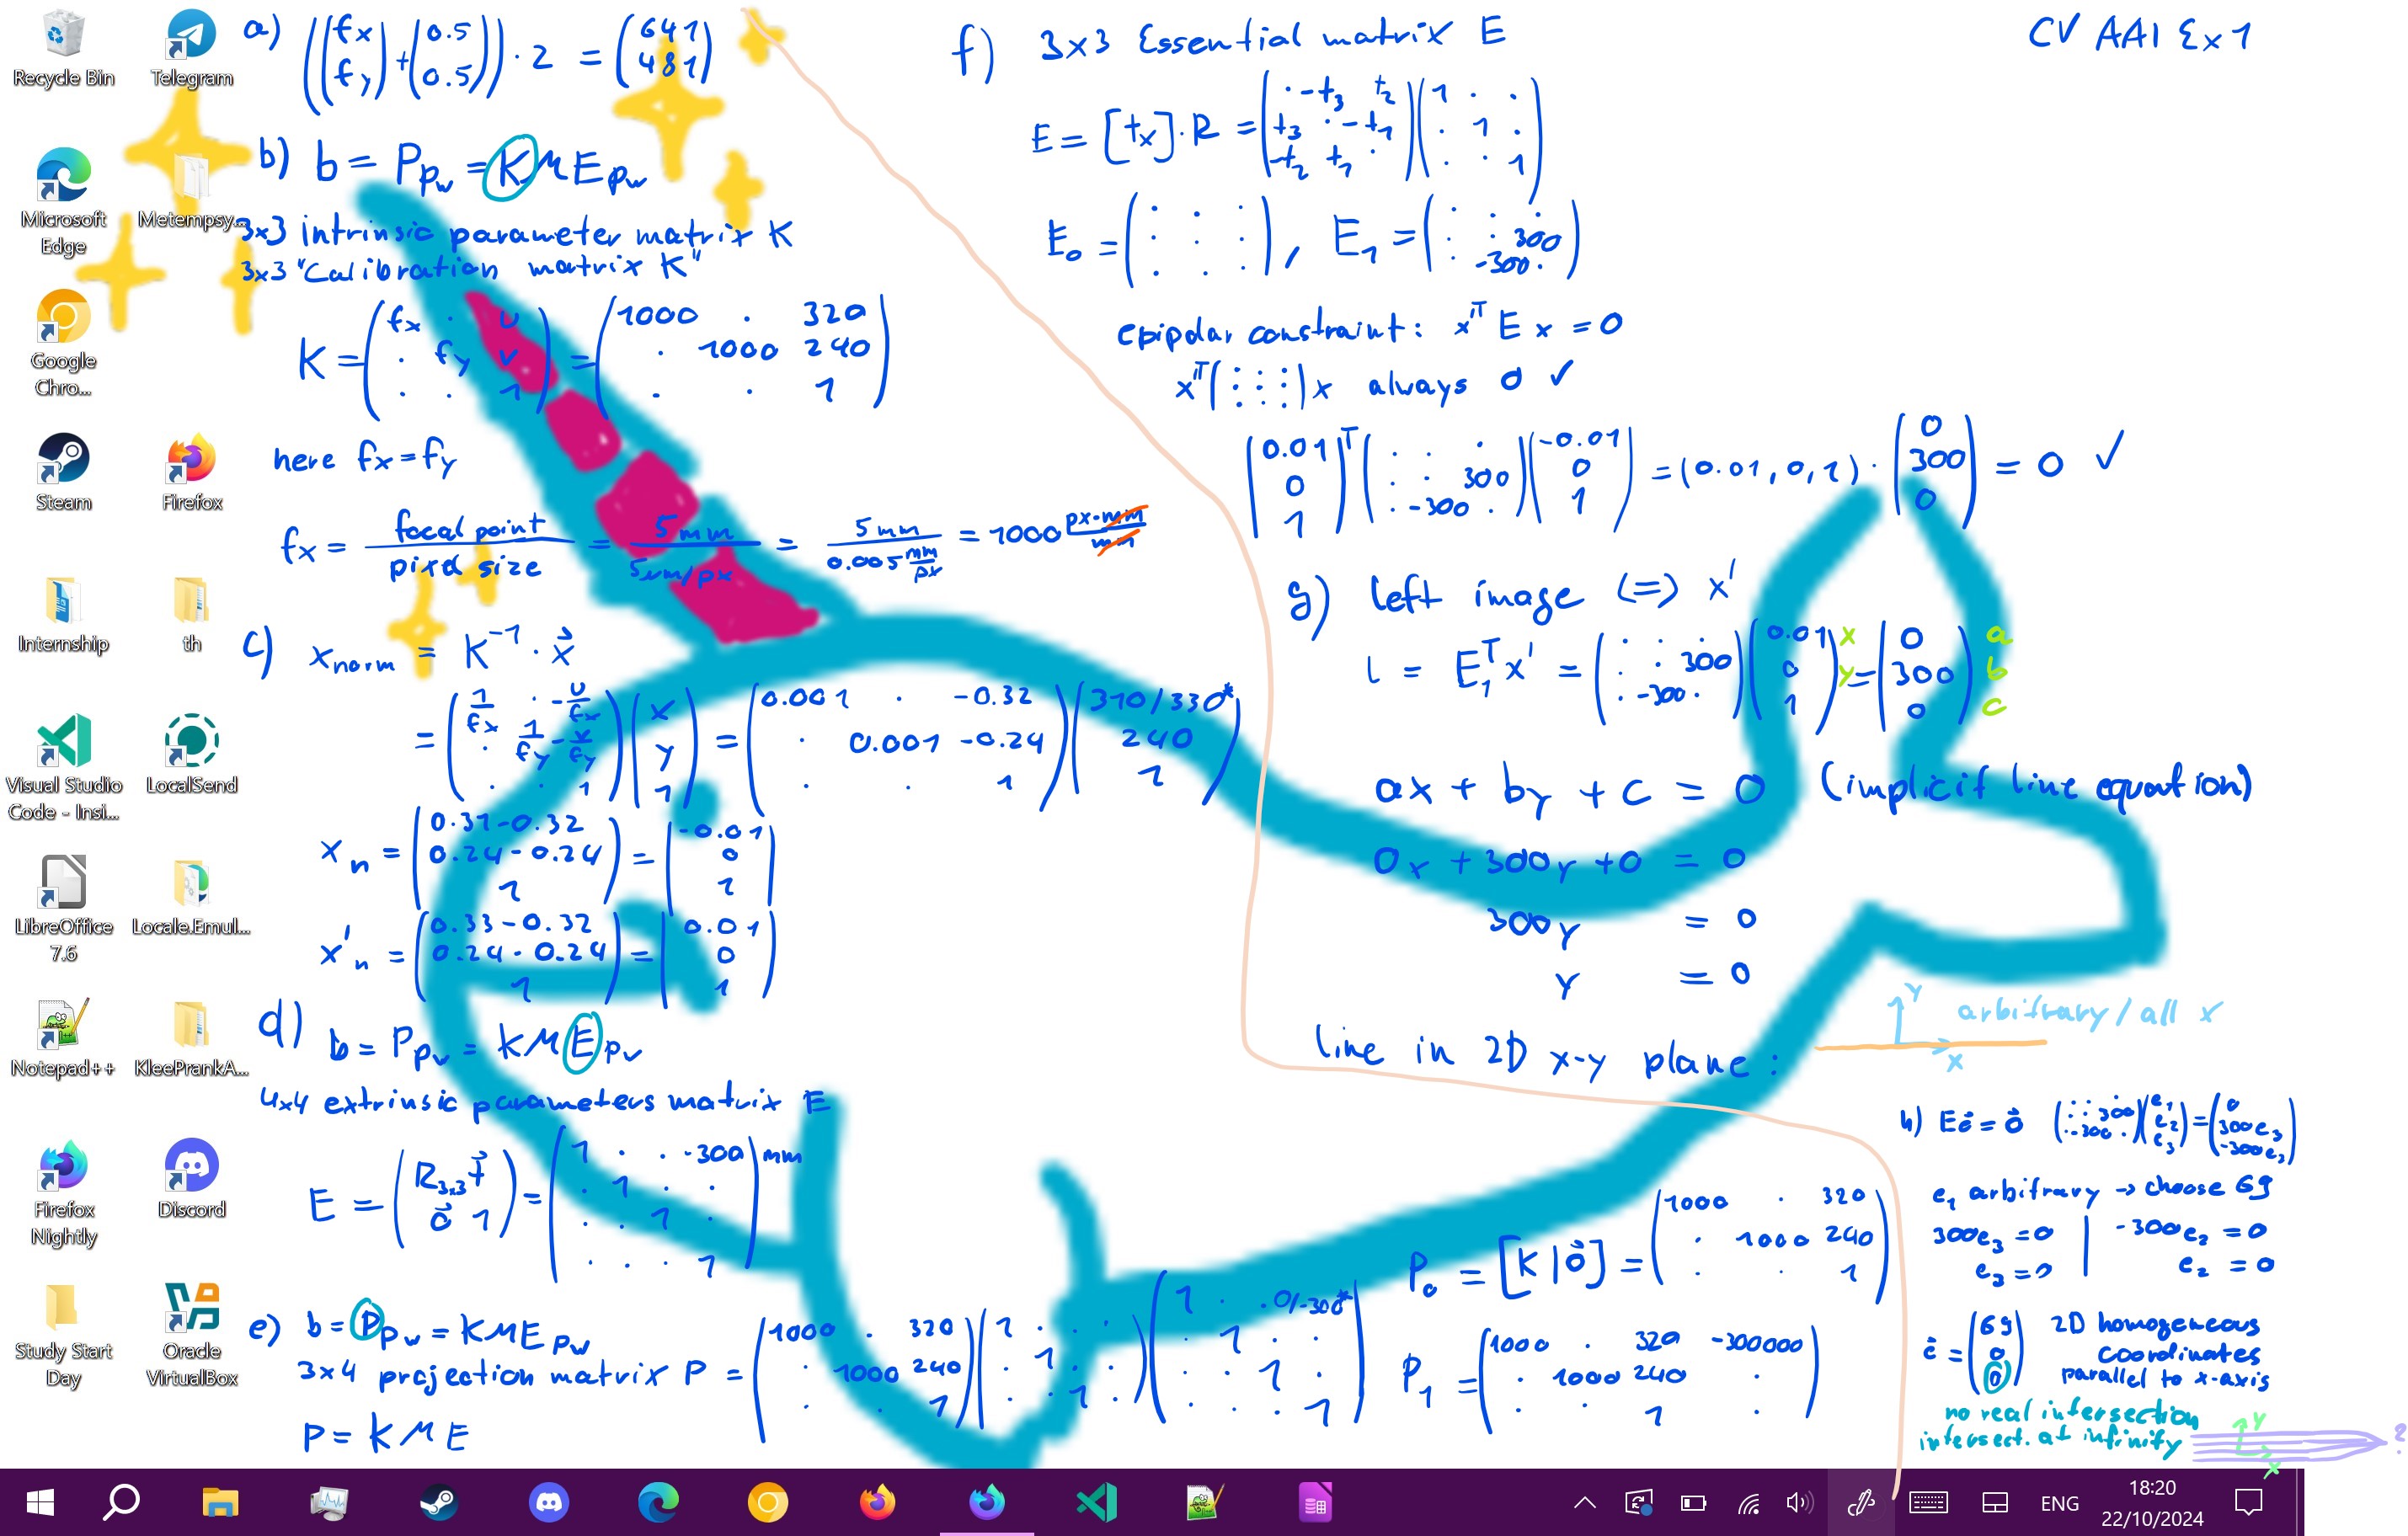 Recycle Bin
Telegram
Microsoft Edge
Metempsy...
Google Chro...
Steam
Firefox
Internship
th
Visual Studio Code - Insi...
LocalSend
LibreOffice 7.6
Locale.Emul...
Notepad++
KleePrankA...
Firefox Nightly
Discord
Study Start Day
Oracle VirtualBox
CV AAI Ex 1
a) ((fx fy) + (0.5 0.5)) · 2 = (641 481)
b) b = P pw = K M E pw
3x3 intrinsic parameter matrix K
3x3 "Calibration matrix K"
K = (fx · u
· fy v
· · 1) = (1000 · 320
· 1000 240
· · 1)
here fx = fy
fx = focal point / pixel size = 5 mm / 5 μm/px = 5 mm / 0.005 mm/px = 1000 px·mm/mm
c) xnorm = K⁻¹ · x⃗
= (1/fx · -u/fx
· 1/fy -v/fy
· · 1) (x y 1) = (0.001 · -0.32
· 0.001 -0.24
· · 1) (310/330* 240 1)
xn = (0.31-0.32
0.24-0.24
1) = (-0.01 0 1)
x'n = (0.33-0.32
0.24-0.24
1) = (0.01 0 1)
d) b = P pw = K M E pw
4x4 extrinsic parameters matrix E
E = (R3x3 t⃗
0⃗ 1) = (1 · · -300
· 1 · ·
· · 1 ·
· · · 1) mm
e) b = P pw = K M E pw
3x4 projection matrix P = (1000 · 320
· 1000 240
· · 1) (1 · · ·
· 1 · ·
· · 1 ·) (1 · · 0/-300*
· 1 · ·
· · 1 ·
· · · 1)
P = K M E
P0 = [K | 0⃗] = (1000 · 320
· 1000 240
· · 1)
P1 = (1000 · 320 -300000
· 1000 240 ·
· · 1 ·)
f) 3x3 Essential matrix E
E = [tx] · R = (· -t3 t2
t3 · -t1
-t2 t1 ·) (1 · ·
· 1 ·
· · 1)
E0 = (· · ·
· · ·
· · ·), E1 = (· · ·
· · 300
· -300 ·)
epipolar constraint: x'ᵀ E x = 0
x'ᵀ (⋮ ⋮ ⋮) x always 0 ✓
(0.01 0 1)ᵀ (· · ·
· · 300
· -300 ·) (-0.01 0 1) = (0.01, 0, 1) · (0 300 0) = 0 ✓
g) left image <=> x'
l = E1ᵀ x' = (· · ·
· · 300
· -300 ·) (0.01 0 1) x y = (0 300 0) a b c
ax + by + c = 0 (implicit line equation)
0x + 300y + 0 = 0
300y = 0
y = 0
line in 2D x-y plane:
y
x
arbitrary / all x
h) E e⃗ = 0⃗ (· · ·
· · 300
· -300 ·) (e1 e2 e3) = (0 300e3 -300e2)
e1 arbitrary → choose 69
300e3 = 0 | -300e2 = 0
e3 = 0 e2 = 0
e⃗ = (69 0 0) 2D homogeneous
coordinates
parallel to x-axis
no real intersection
intersect. at infinity
y
x
?
ENG
18:20
22/10/2024